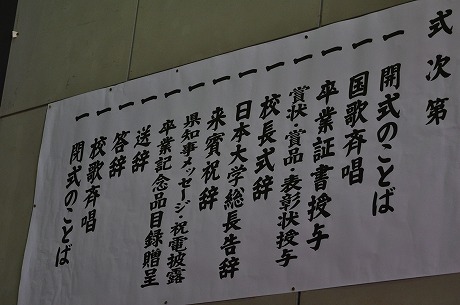 式次第
一 開式のことば
一 国歌斉唱
一 卒業証書授与
一 賞状・賞品・表彰状授与
一 校長式辞
一 日本大学総長告辞
一 来賓祝辞
一 県知事メッセージ・祝電披露
一 卒業記念品目録贈呈
一 送辞
一 答辞
一 校歌斉唱
一 閉式のことば